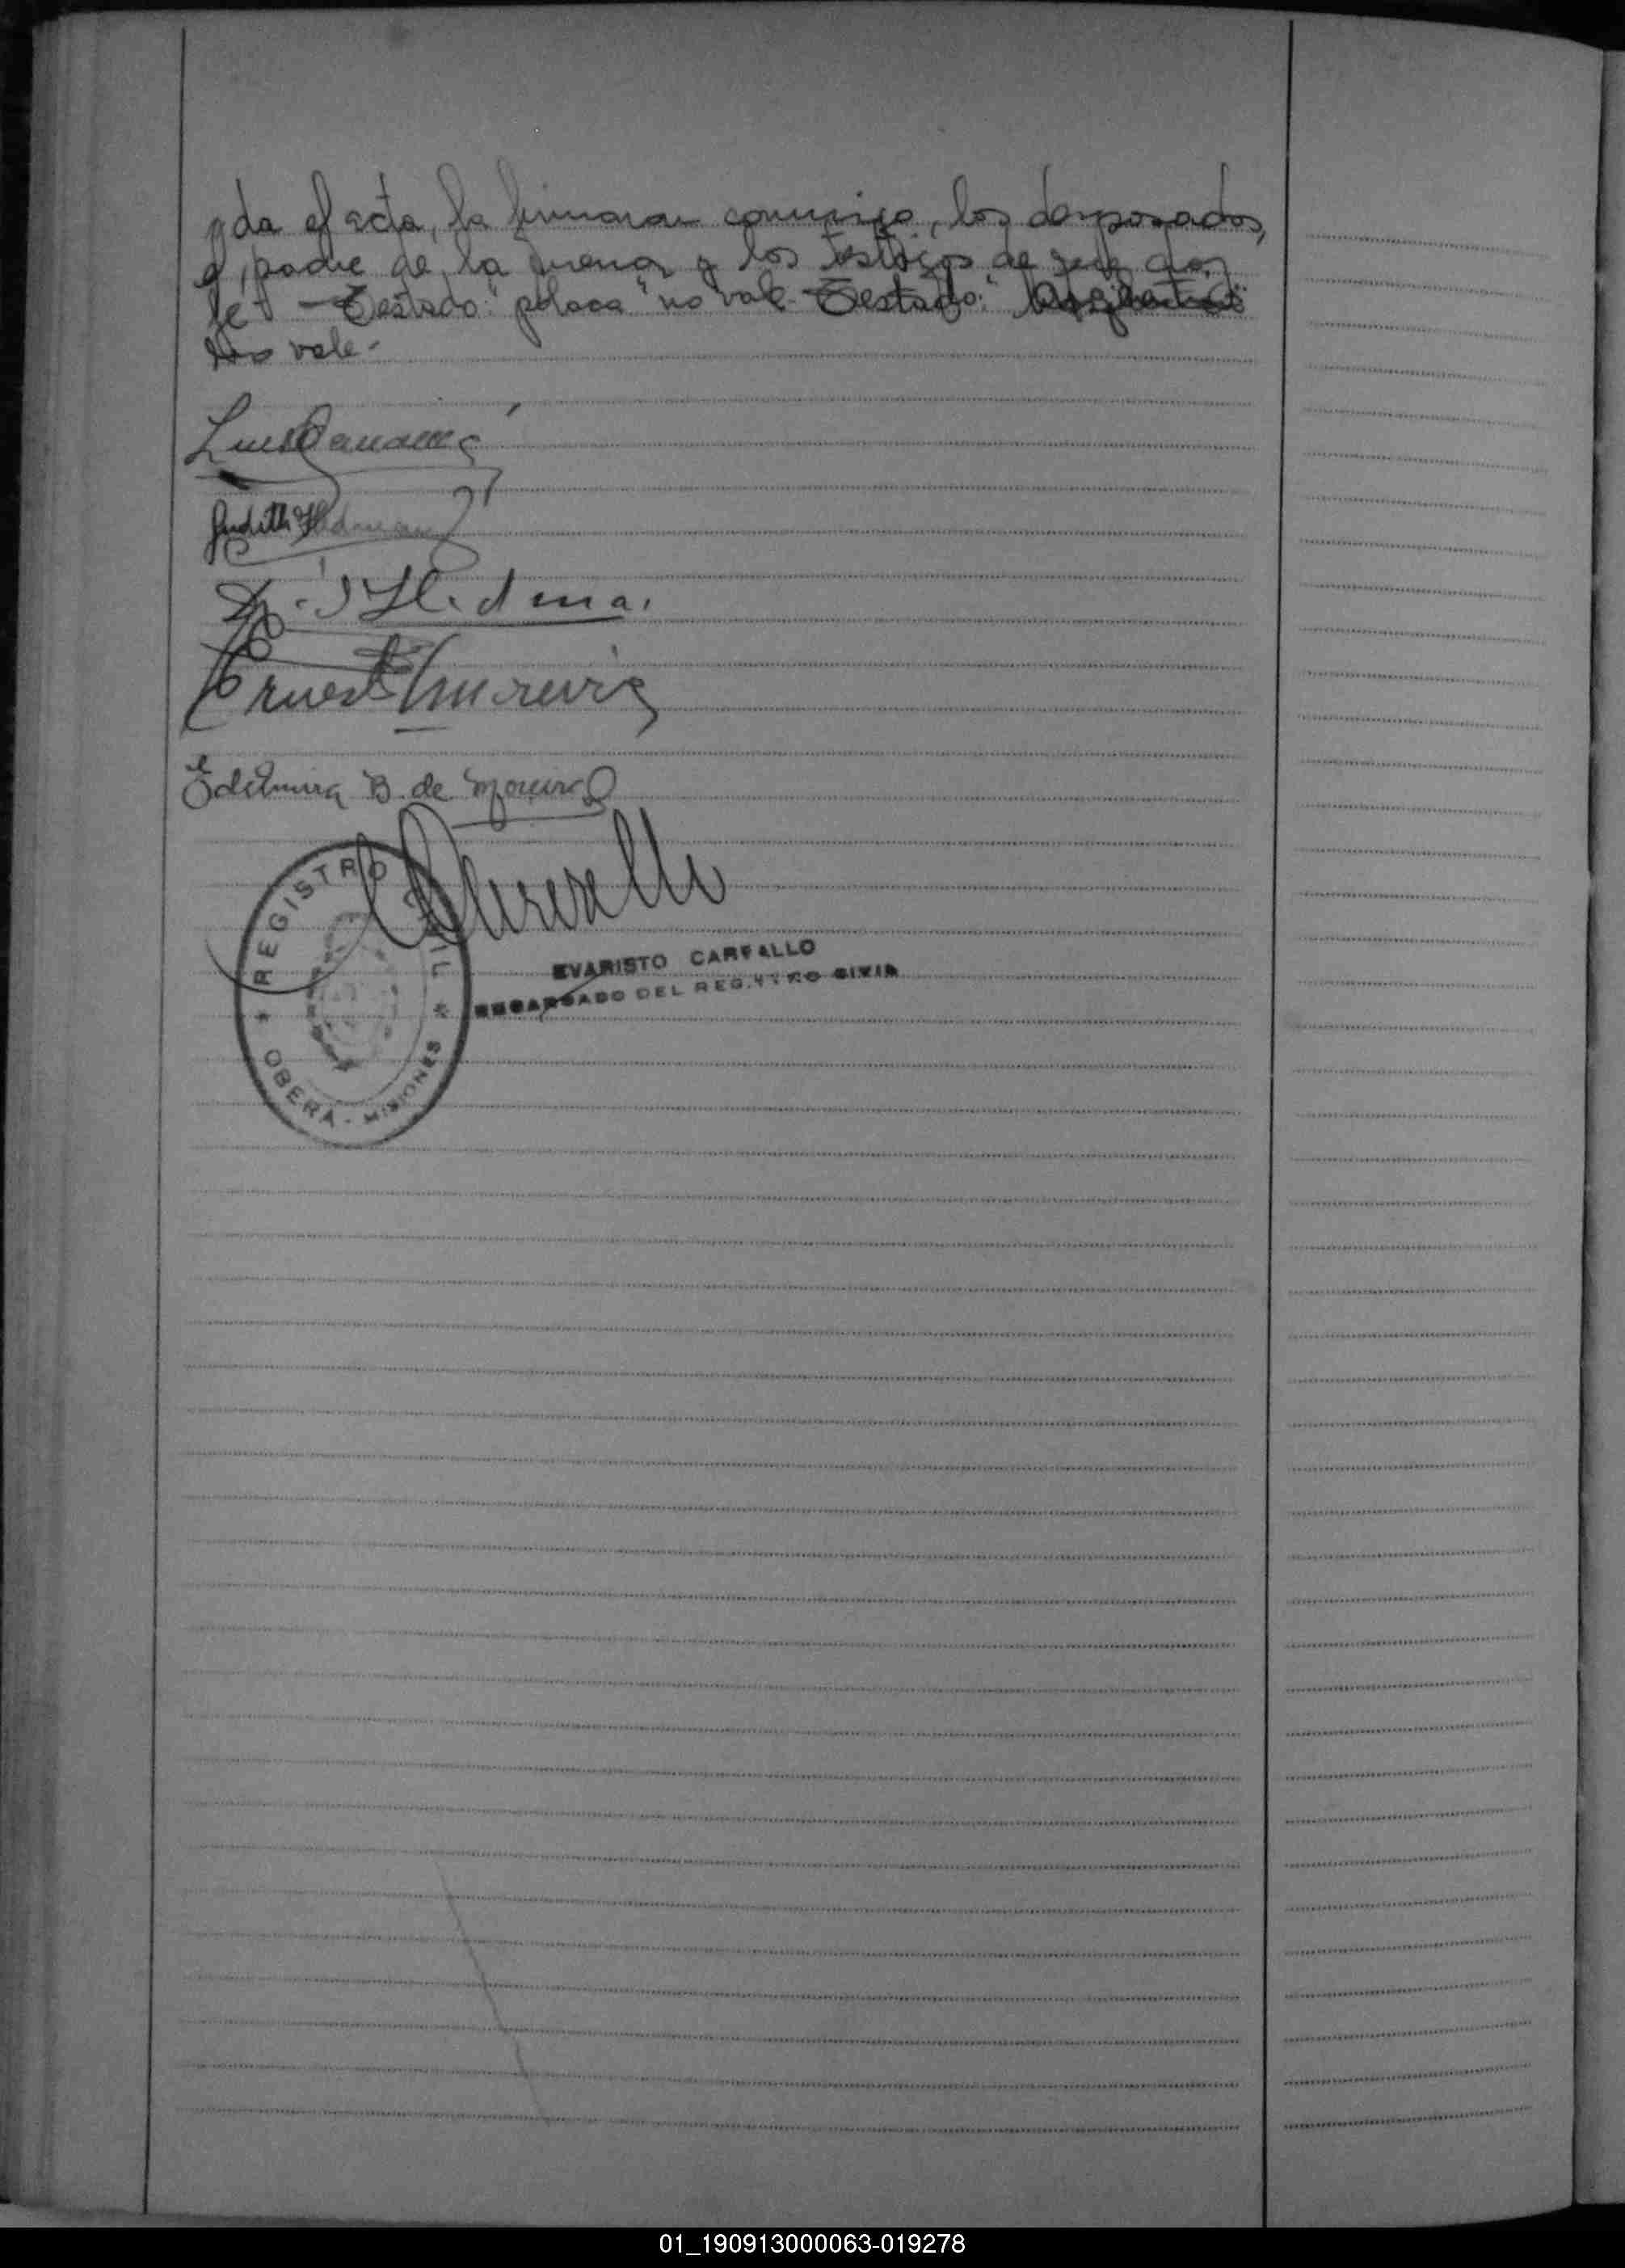 da el acta, la firmaron conmigo, los desposados,
el padre de la menor y los testigos de que doy
fe - Testado: "polaca" no vale. Testado:
No vale.-
Luis
Judith Hedman
Hedman
Ernesto Moreira
Edelmira B. de Moreira
REGISTRO CIVIL
* OBERA - MISIONES *
EVARISTO CARFALLO
ENCARGADO DEL REGISTRO CIVIL
01_190913000063-019278